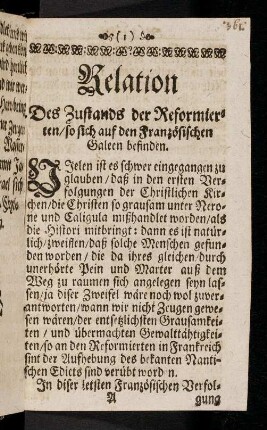 (1)
361.
Relation
Des Zustands der Reformier-
ten/so sich auf den Französischen
Galeen befinden.
VIelen ist es schwer eingegangen zu
glauben/daß in den ersten Ver-
folgungen der Christlichen Kir-
chen/die Christen so grausam unter Nero-
ne und Caligula mißhandlet worden/als
die Histori mitbringt: dann es ist natür-
lich/zweiflen/daß solche Menschen gefun-
den worden/die da ihres gleichen/durch
unerhörte Pein und Marter auß dem
Weg zu raumen sich angelegen seyn las-
sen/ja diser Zweifel wäre noch wol zuver-
antworten/wann wir nicht Zeugen gewe-
sen wären/der entsetzlichsten Grausamkei-
ten/und übermachten Gewaltthätigkei-
ten/so an den Reformierten in Frankreich
sint der Aufhebung des bekanten Nanti-
schen Edicts sind verübt word n.
In diser letsten Französischen Verfol-
A gung